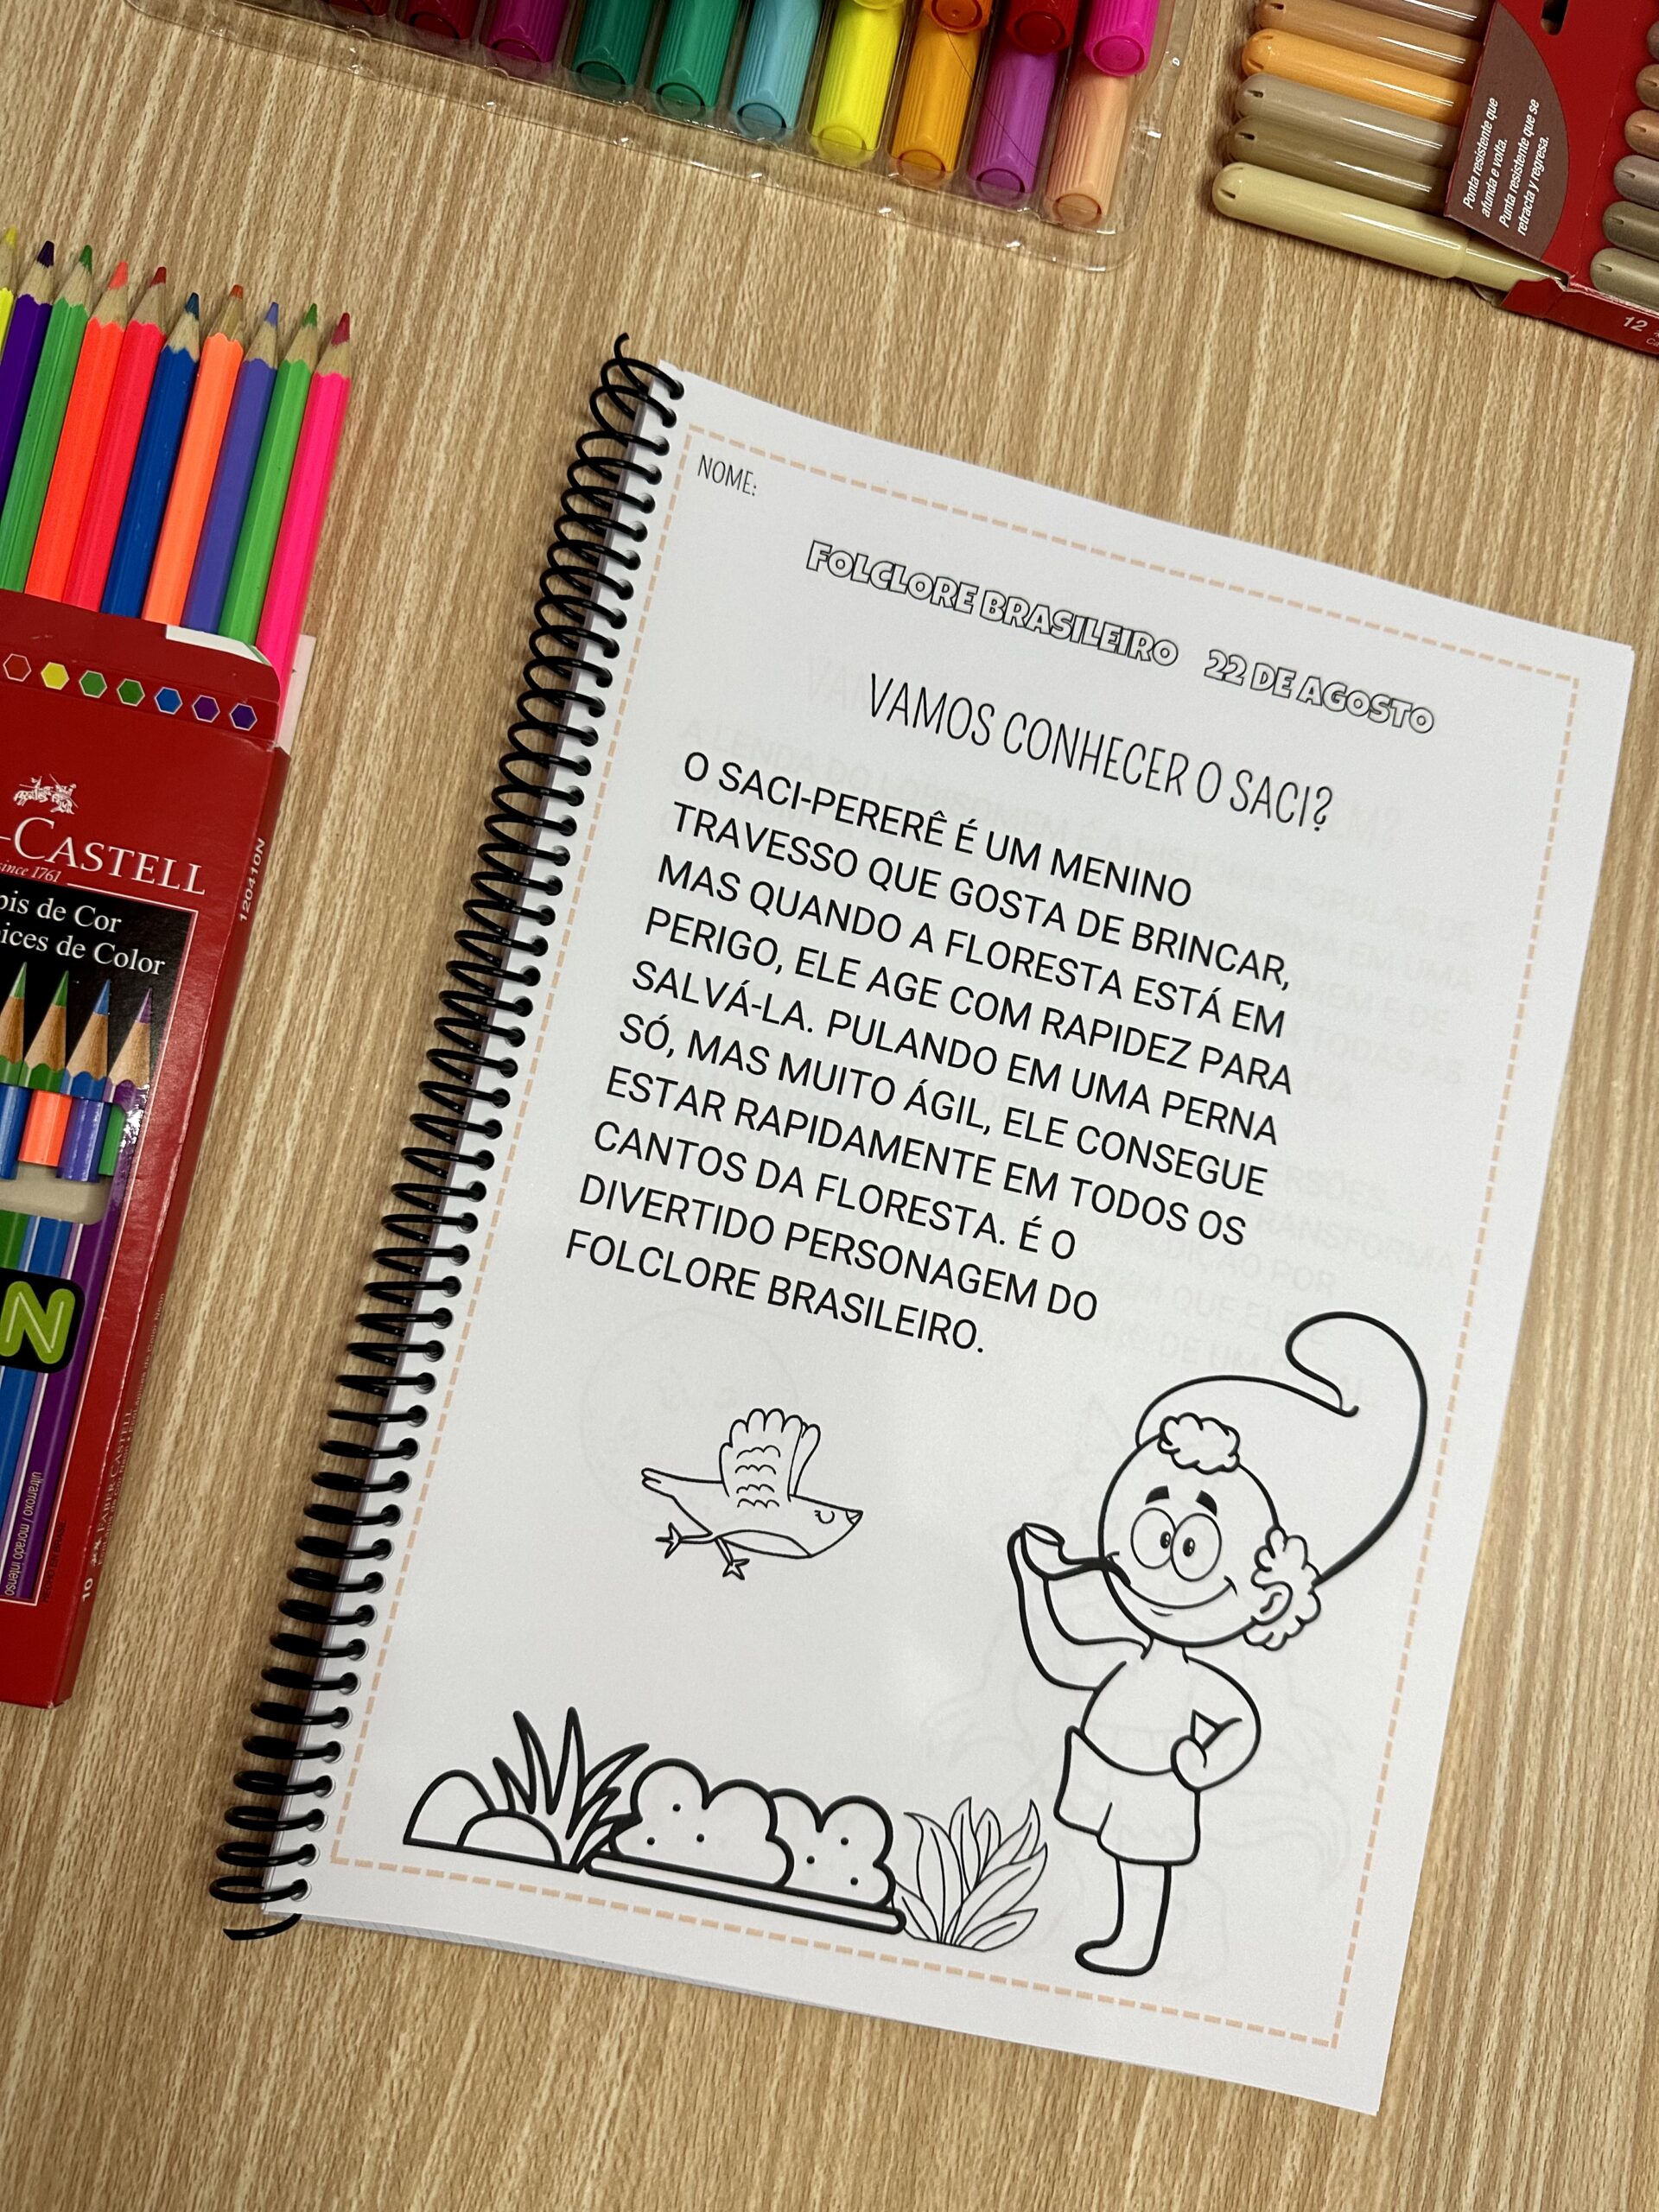 Ponta resistente que
afunda e volta.
Punta resistente que se
retracta y regresa.
12
NOME:
FOLCLORE BRASILEIRO 22 DE AGOSTO
VAMOS CONHECER O SACI?
O SACI-PERERÊ É UM MENINO
TRAVESSO QUE GOSTA DE BRINCAR,
MAS QUANDO A FLORESTA ESTÁ EM
PERIGO, ELE AGE COM RAPIDEZ PARA
SALVÁ-LA. PULANDO EM UMA PERNA
SÓ, MAS MUITO ÁGIL, ELE CONSEGUE
ESTAR RAPIDAMENTE EM TODOS OS
CANTOS DA FLORESTA. É O
DIVERTIDO PERSONAGEM DO
FOLCLORE BRASILEIRO.
-CASTELL
since 1761
pis de Cor
ices de Color
120410N
N
ultrarroxo / morado intenso
10
FABER-CASTELL